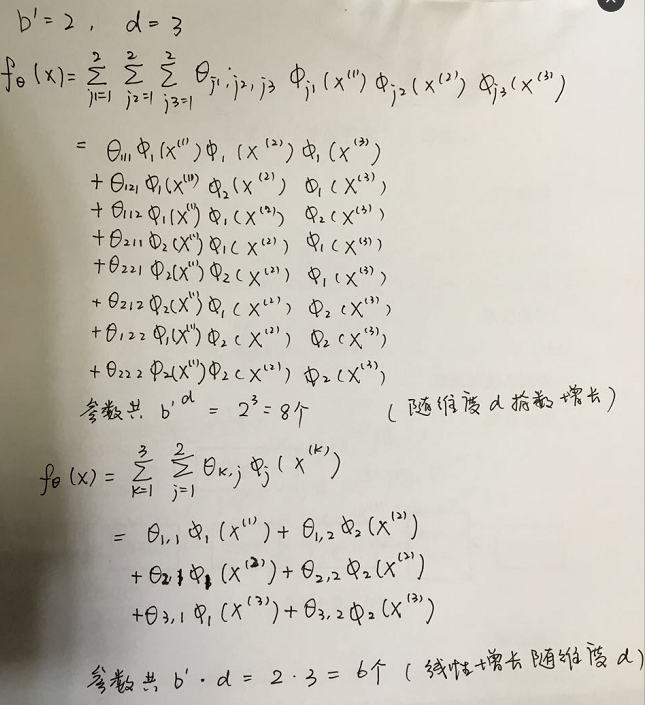 b' = 2 , d = 3
f_θ(x) = Σ_{j1=1}^{2} Σ_{j2=1}^{2} Σ_{j3=1}^{2} θ_{j1,j2,j3} Φ_{j1}(x^{(1)}) Φ_{j2}(x^{(2)}) Φ_{j3}(x^{(3)})
= θ_{111} Φ_1(x^{(1)}) Φ_1(x^{(2)}) Φ_1(x^{(3)})
+ θ_{121} Φ_1(x^{(1)}) Φ_2(x^{(2)}) Φ_1(x^{(3)})
+ θ_{112} Φ_1(x^{(1)}) Φ_1(x^{(2)}) Φ_2(x^{(3)})
+ θ_{211} Φ_2(x^{(1)}) Φ_1(x^{(2)}) Φ_1(x^{(3)})
+ θ_{221} Φ_2(x^{(1)}) Φ_2(x^{(2)}) Φ_1(x^{(3)})
+ θ_{212} Φ_2(x^{(1)}) Φ_1(x^{(2)}) Φ_2(x^{(3)})
+ θ_{122} Φ_1(x^{(1)}) Φ_2(x^{(2)}) Φ_2(x^{(3)})
+ θ_{222} Φ_2(x^{(1)}) Φ_2(x^{(2)}) Φ_2(x^{(3)})
参数共 b'^d = 2^3 = 8个 (随维度d指数增长)
f_θ(x) = Σ_{k=1}^{3} Σ_{j=1}^{2} θ_{k,j} Φ_j(x^{(k)})
= θ_{1,1} Φ_1(x^{(1)}) + θ_{1,2} Φ_2(x^{(2)})
+ θ_{2,1} Φ_1(x^{(2)}) + θ_{2,2} Φ_2(x^{(2)})
+ θ_{3,1} Φ_1(x^{(3)}) + θ_{3,2} Φ_2(x^{(3)})
参数共 b'·d = 2·3 = 6个 (线性增长随维度d)